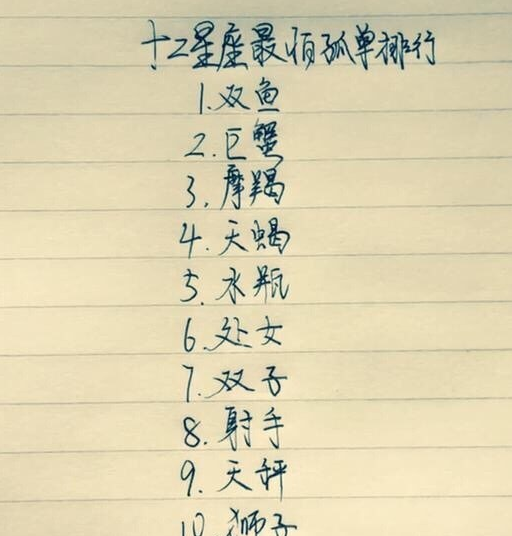 十二星座最怕孤单排行
1.双鱼
2.巨蟹
3.摩羯
4.天蝎
5.水瓶
6.处女
7.双子
8.射手
9.天秤
10.狮子